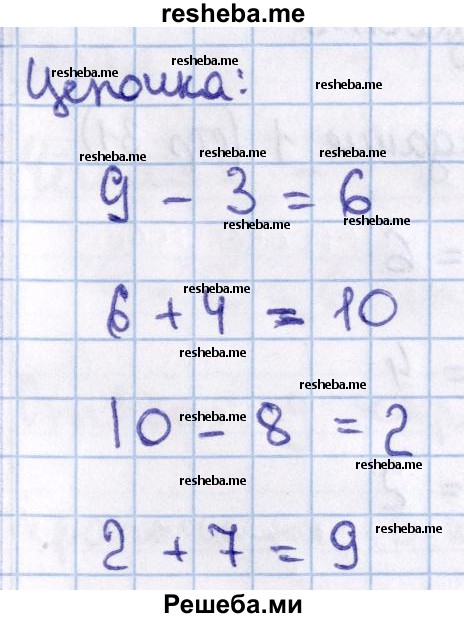 resheba.me
resheba.me
resheba.me
Цепочка:
resheba.me
resheba.me
resheba.me
resheba.me
9 - 3 = 6
resheba.me
resheba.me
resheba.me
6 + 4 = 10
resheba.me
resheba.me
resheba.me
10 - 8 = 2
resheba.me
resheba.me
resheba.me
2 + 7 = 9
Решеба.ми